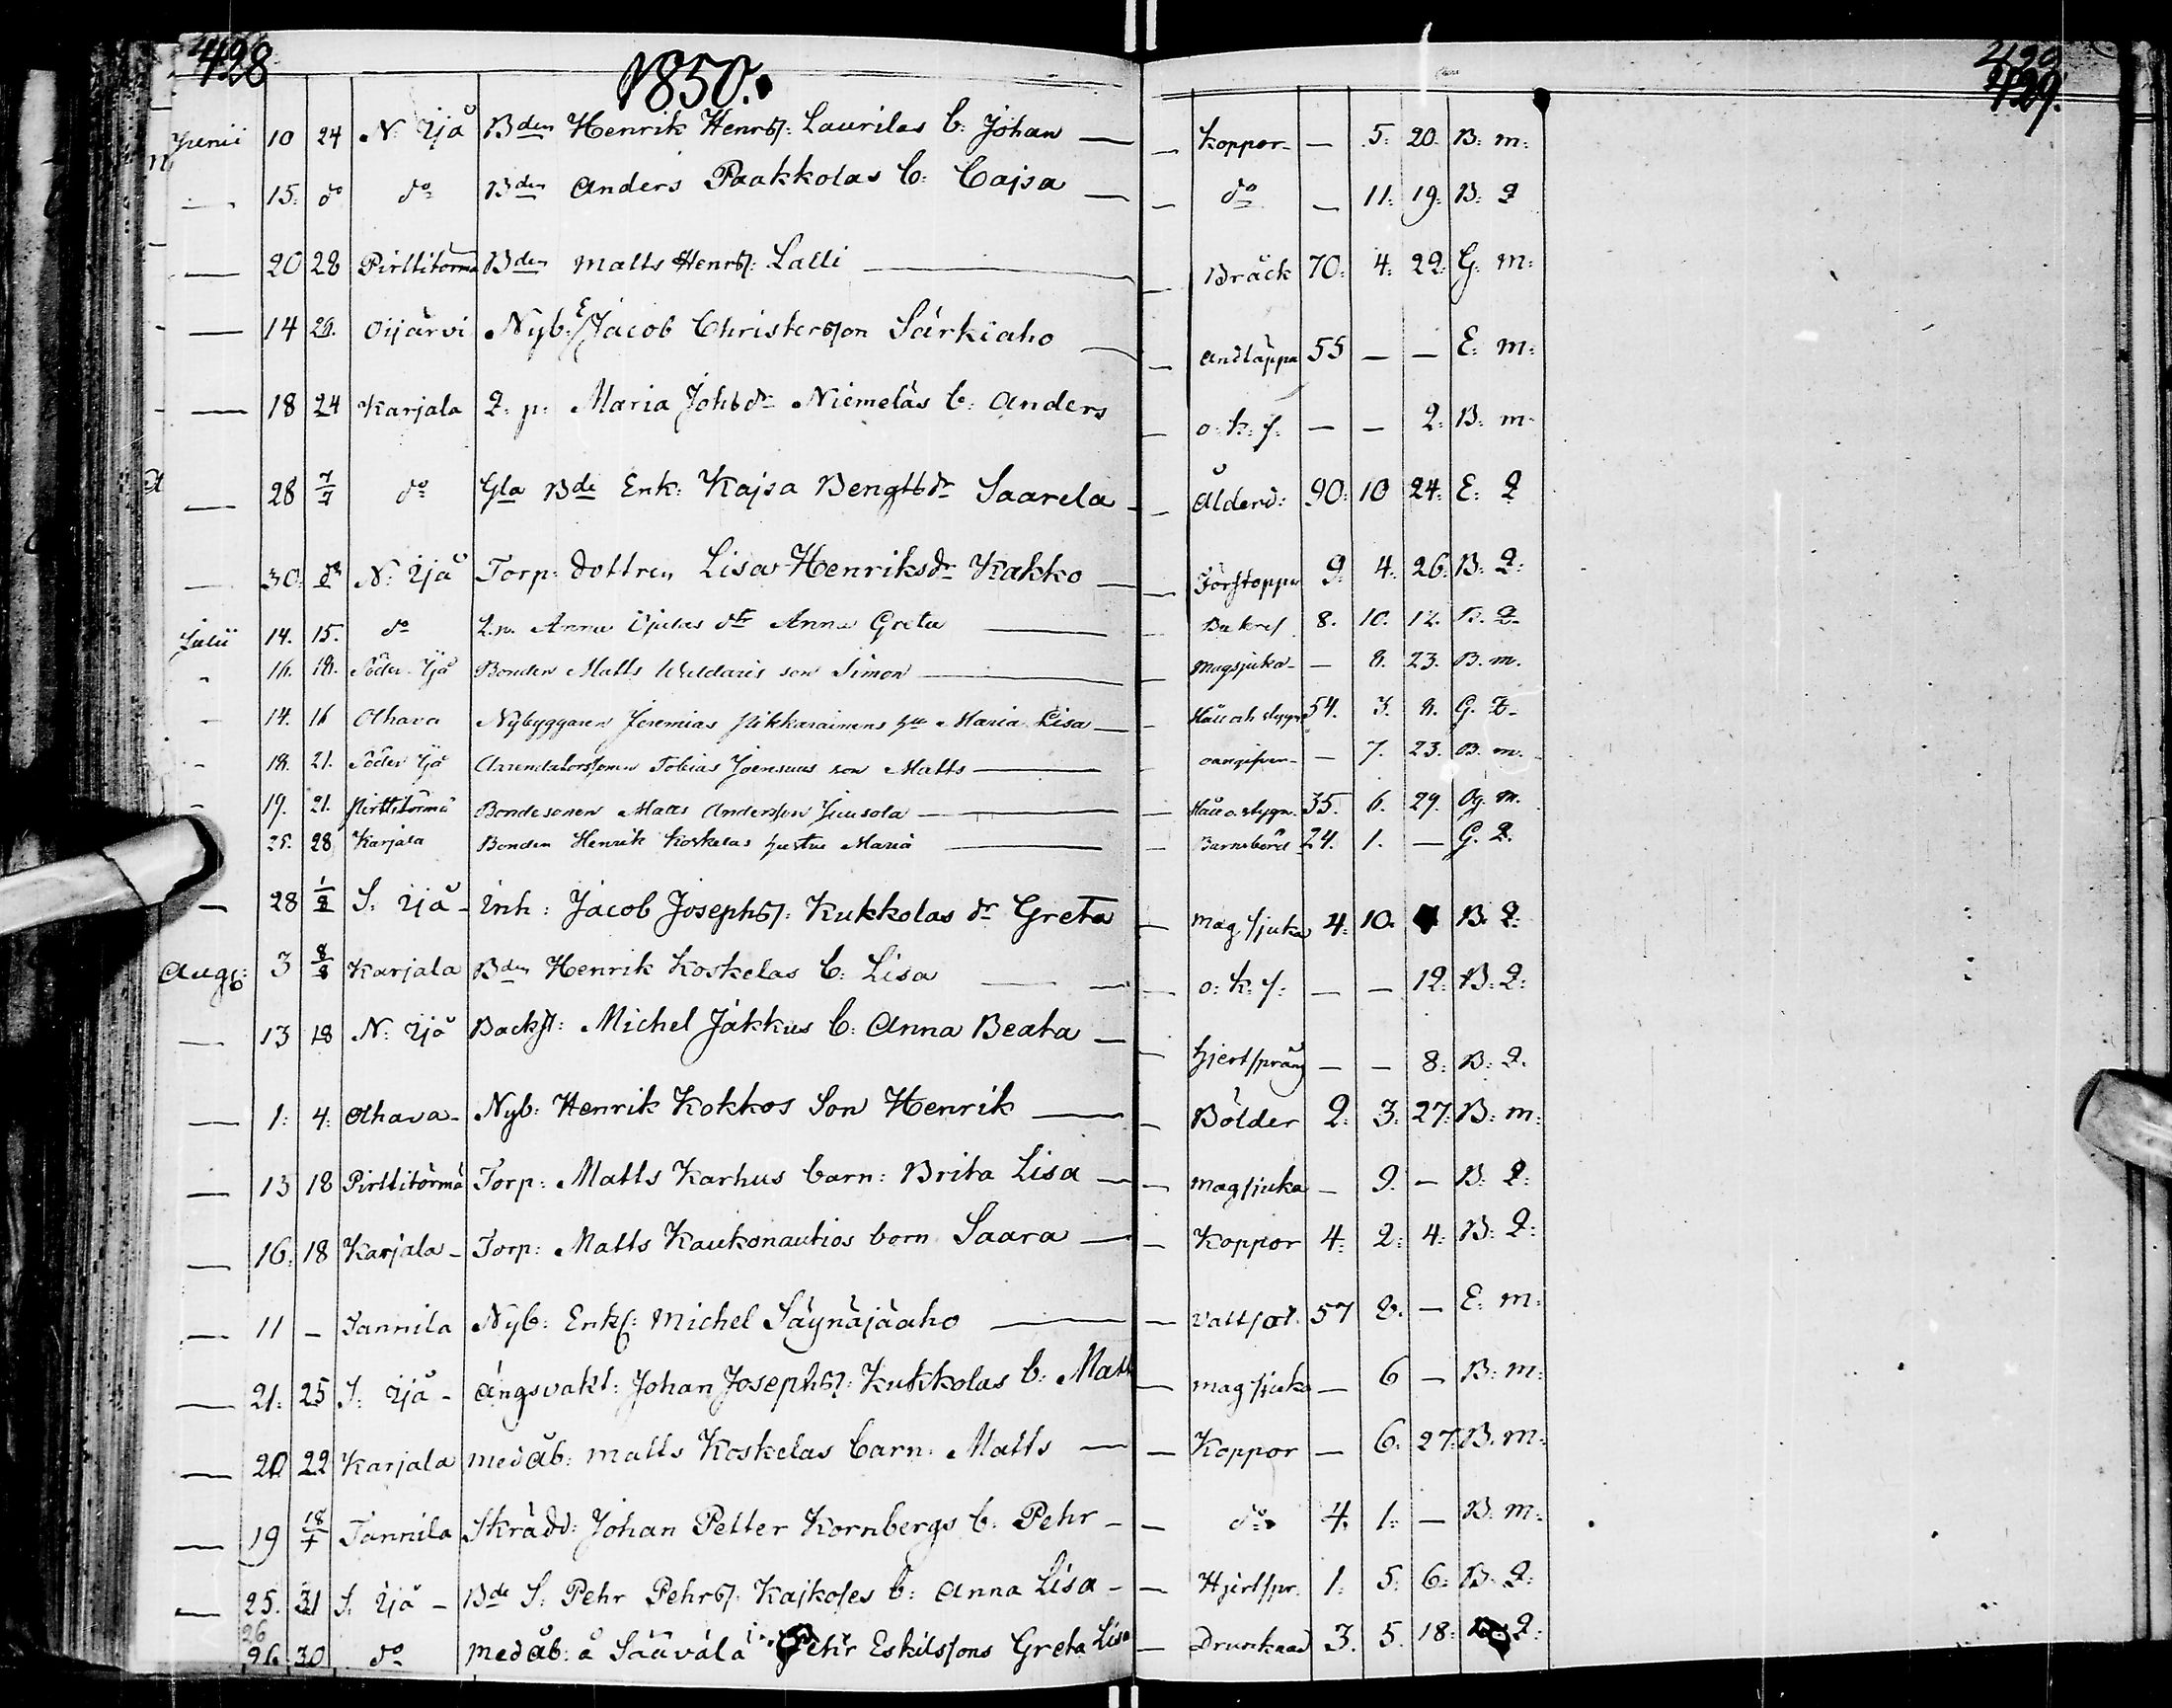 428 429.
1850.
Junii 10 24 N: Ijå Bden Henrik Henrss: Laurilas b: Johan — Koppor — 5: 20. B: m:
— 15: do do Bden Anders Paakkolas b: Cajsa — do — 11: 19: B: Q
— 20 28 Pirttitörmä Bden Matts Henrss: Lalli — Bråck 70: 4: 22: G: m:
— 14 Oijärvi Nyb: E Jacob Christersson Särkiaho — Andtäppa 55 — — E: m:
— 18 24 Karjala Q: p: Maria Johsdr Niemeläs b: Anders — o: k: s: — — 2: B: m:
— 28 7/7 do Gla Bde Enk: Kajsa Bengtsdr Saarela — Ålderd: 90: 10 24: E: Q
— 30 do N: Ijå Torp: dottren Lisa Henriksdr Kakko — Förstoppn 9: 4: 26: B: Q:
Julii 14. 15. do Anna dtr Anna Greta — 8. 10. 12. B. Q.
16. 18. Söder Ijå Bonden Matts son Simon — Magsjuka — 8. 23. B. m.
14. 16 Olhava Nybyggaren Jeremias Pikkarainens hu Maria Lisa — 54. 3. 8. G. Q.
18. 21. Söder Ijå Arrendatorssonen Tobias Joensuus son Matts — oangifven — 7. 23. B. m.
19. 21. Pirttitörmä Bondesonen Matts Andersson Juusola — Håll o. stygn. 35. 6. 29. Og. m.
25. 28 Karjala Bonden Henrik Koskelas hustru Maria — Barnsbörd 24. 1. — G. Q.
— 28 1/8 S: Ijå - Inh: Jacob Josephss: Kukkolas dr Greta — Magsjuka 4: 10. B: Q:
Aug: 3 8/8 Karjala Bden Henrik Koskelas b: Lisa — o: k: s: — — 12: B: Q:
— 13 18 N: Ijå Backst: Michel Jakkus b: Anna Beata — hjertsprång — — 8: B: Q.
— 1: 4: Olhava - Nyb: Henrik Kokkos Son Henrik — Bölder 2: 3: 27: B: m:
— 13 18 Pirttitörmä Torp: Matts Karhus barn: Brita Lisa — Magsjuka — 9. — B: Q:
— 16: 18 Karjala - Torp: Matts Kaukonautios barn Saara — Koppor 4: 2: 4: B: Q:
— 11 — Tannila Nyb: Enkl: Michel Säynäjäaho — Vattsot. 57 2. — E: m:
— 21: 25 S: Ijå - Ängsvakt: Johan Josephss: Kukkolas b: Matts — Magsjuka — 6 — B: m:
— 20 22 Karjala Medåb: Matts Koskelas barn: Matts — Koppor — 6. 27: B: m:
— 19 Tannila Skrädd: Johan Petter Kornbergs b: Pehr — do 4. 1: — B: m:
— 25. 31 S: Ijå - Bde S: Pehr Pehrss: b: Anna Lisa — Hjertspr. 1: 5: 6: B: Q:
26
26 30 do Medåb: å Säävälä Pehr Eskilssons Greta Lisa — Drunknad 3. 5. 18: B: Q: